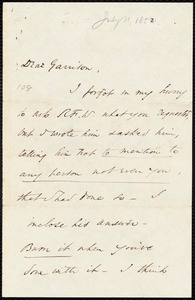 July 11, 1852
Dear Garrison,
I forgot in my hurry
to ask R.F.W. what you requested
but I wrote him & asked him,
telling him not to mention to
any person not even you,
that I had done so – I
inclose his answer –
Burn it when you've
done with it – I think